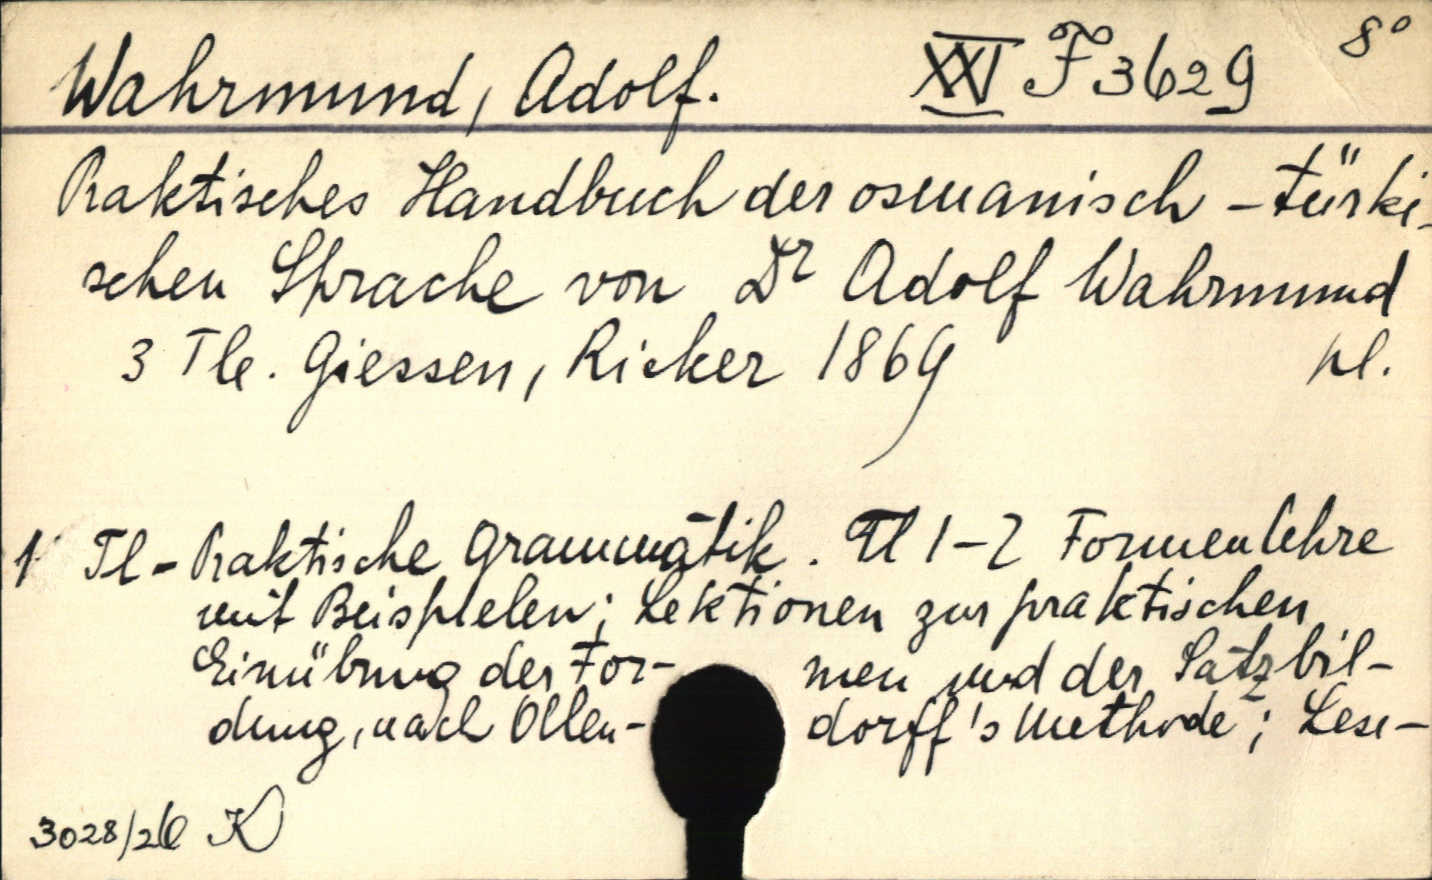 8°
Wahrmund, Adolf. XXI F 3629
Praktisches Handbuch der osmanisch-türki-
schen Sprache von Dr Adolf Wahrmund
3 Tle. Giessen, Ricker 1869 pl.
1 Tl - Praktische Grammatik. Tl 1-2 Formenlehre
mit Beispielen; Lektionen zur praktischen
Einübung der For- men und der Satzbil-
dung, nach Ollen- dorff's Methode; Lese-
3028/26 K